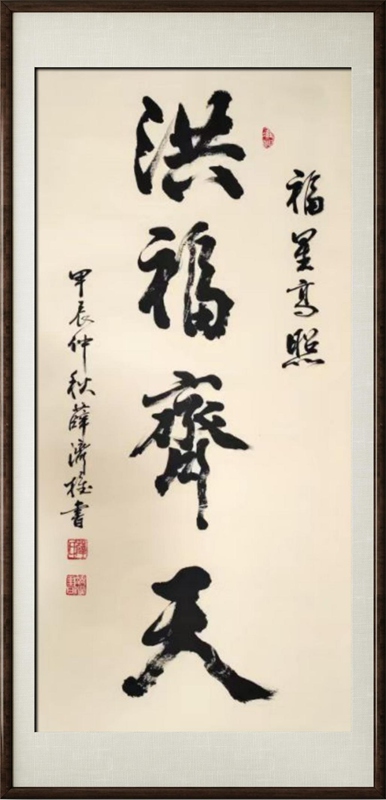 福星高照
洪福齊天
甲辰仲秋薛濟桂書